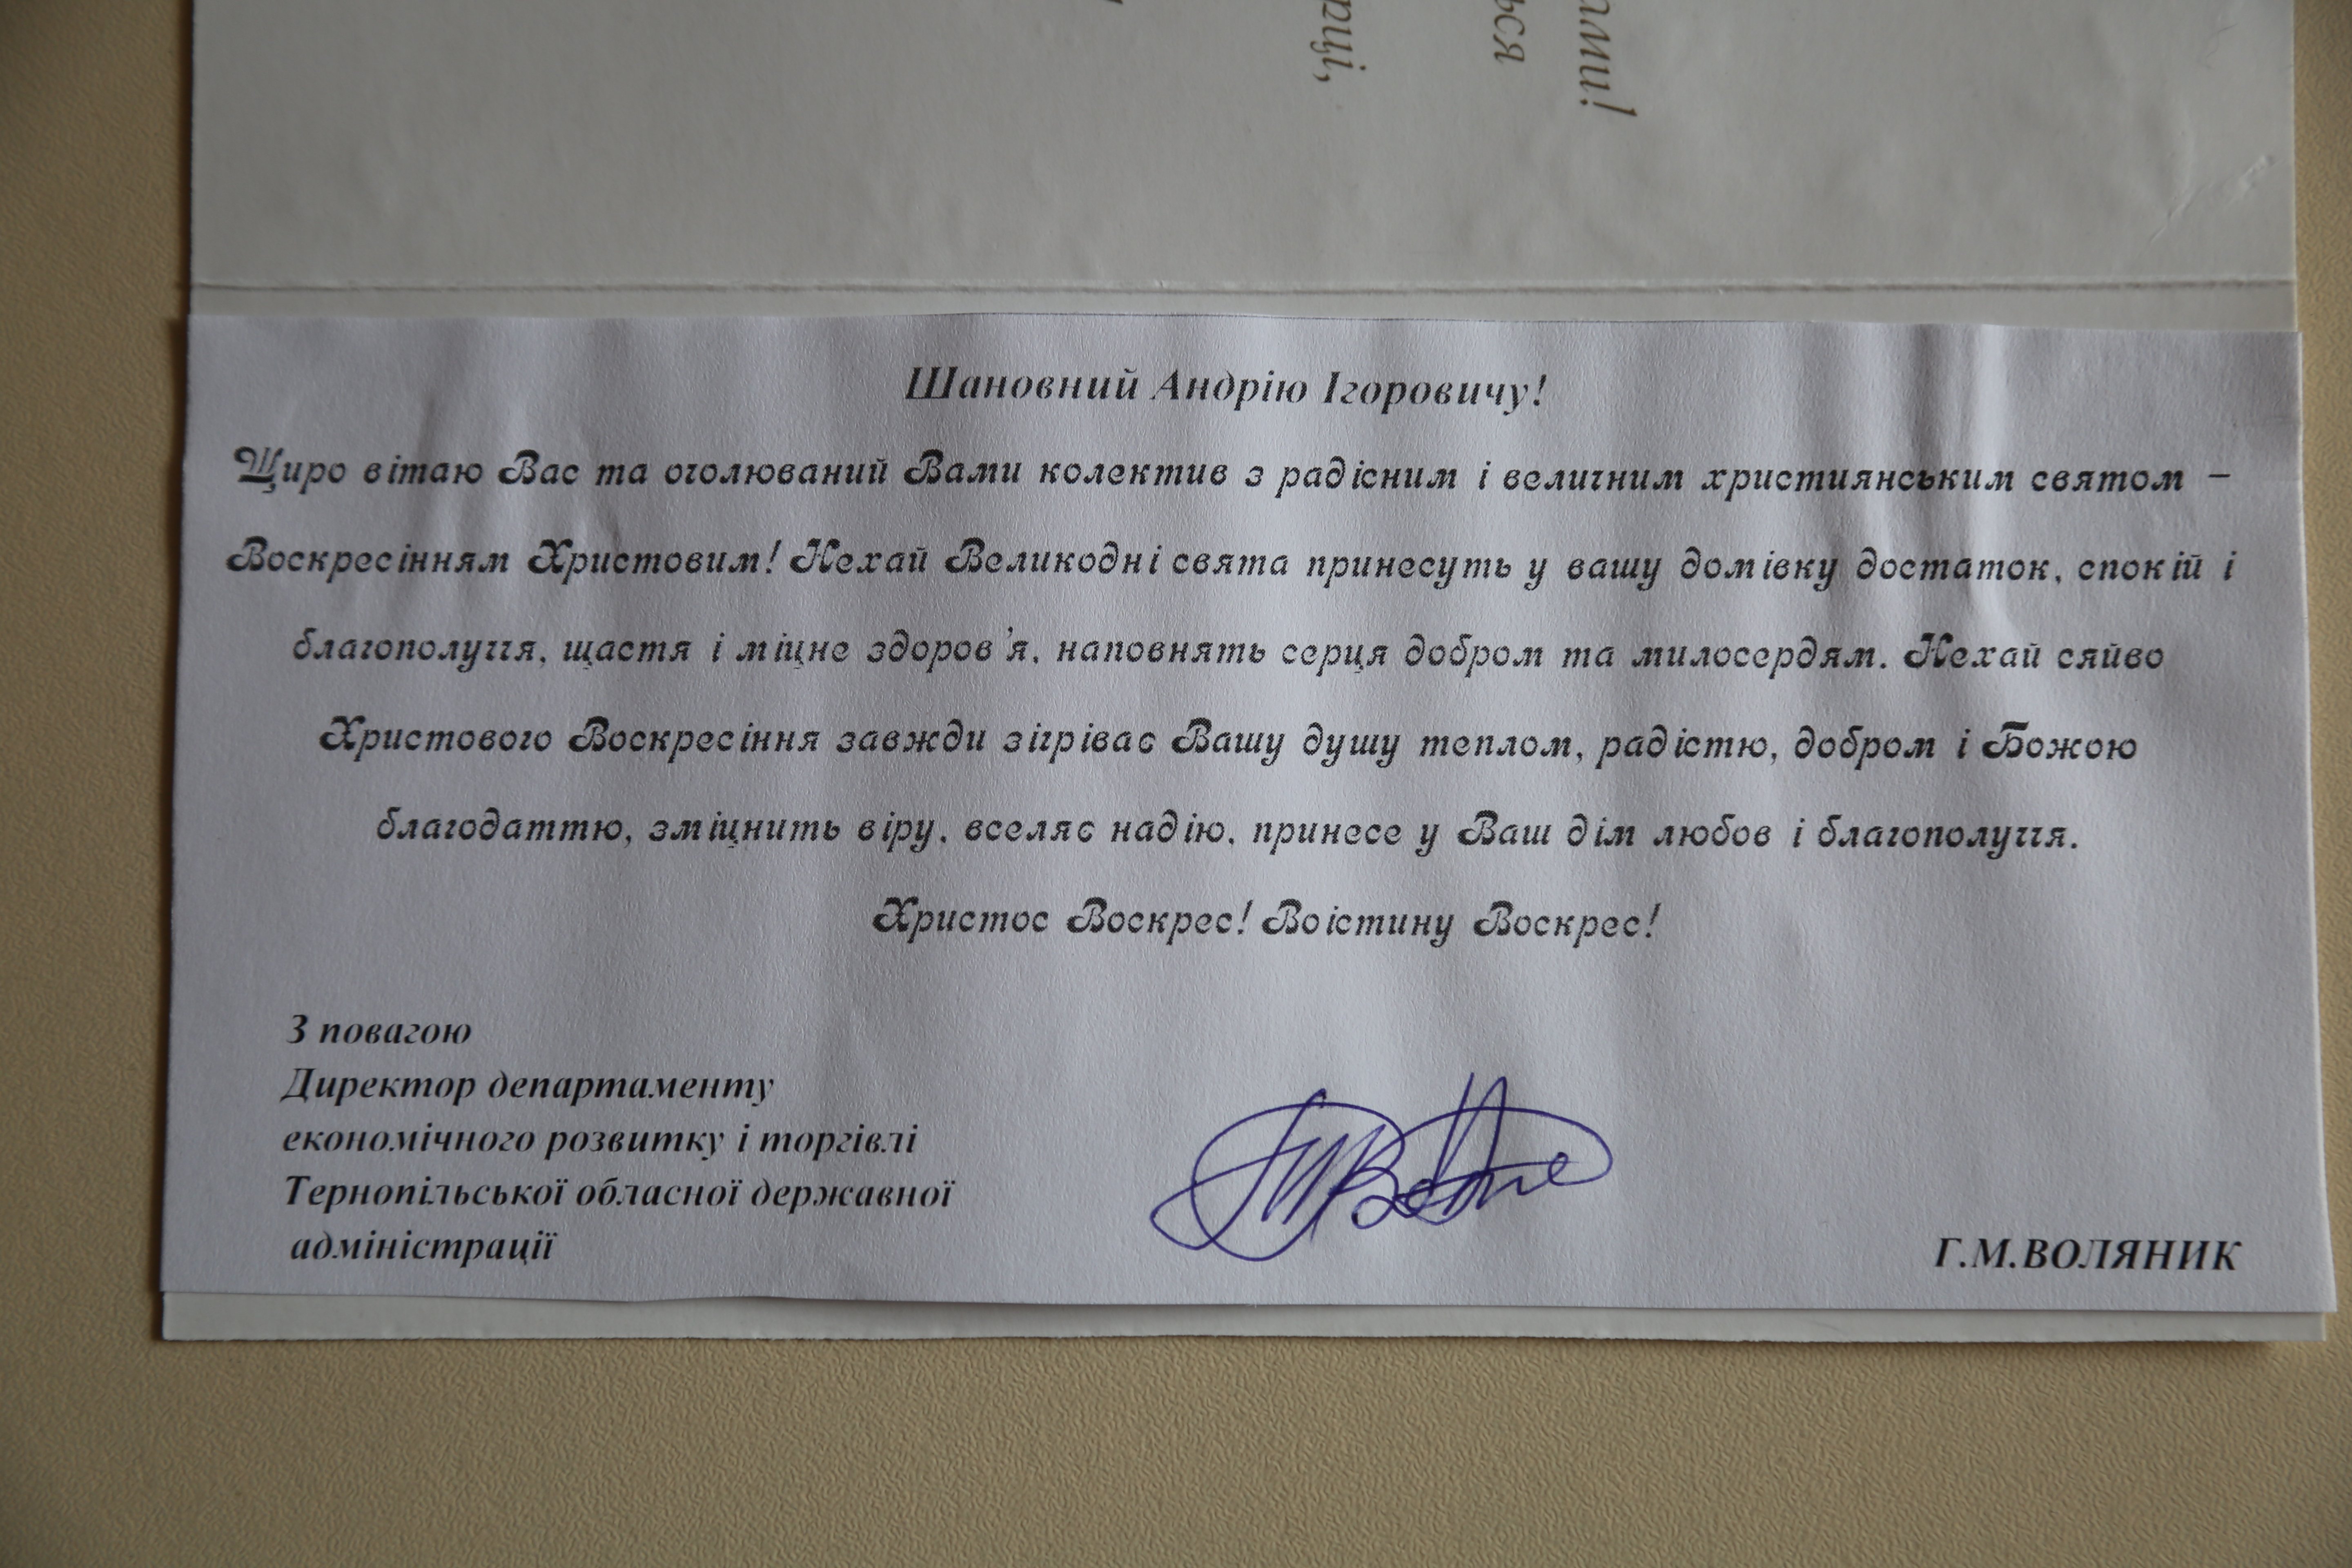 ами!
ься
рці,
Шановний Андрію Ігоровичу!
Щиро вітаю Вас та очолюваний Вами колектив з радісним і величним християнським святом –
Воскресінням Христовим! Нехай Великодні свята принесуть у вашу домівку достаток, спокій і
благополуччя, щастя і міцне здоров'я, наповнять серця добром та милосердям. Нехай сяйво
Христового Воскресіння завжди зігріває Вашу душу теплом, радістю, добром і Божою
благодаттю, зміцнить віру, вселяє надію, принесе у Ваш дім любов і благополуччя.
Христос Воскрес! Воістину Воскрес!
З повагою
Директор департаменту
економічного розвитку і торгівлі
Тернопільської обласної державної
адміністрації
Г.М.ВОЛЯНИК